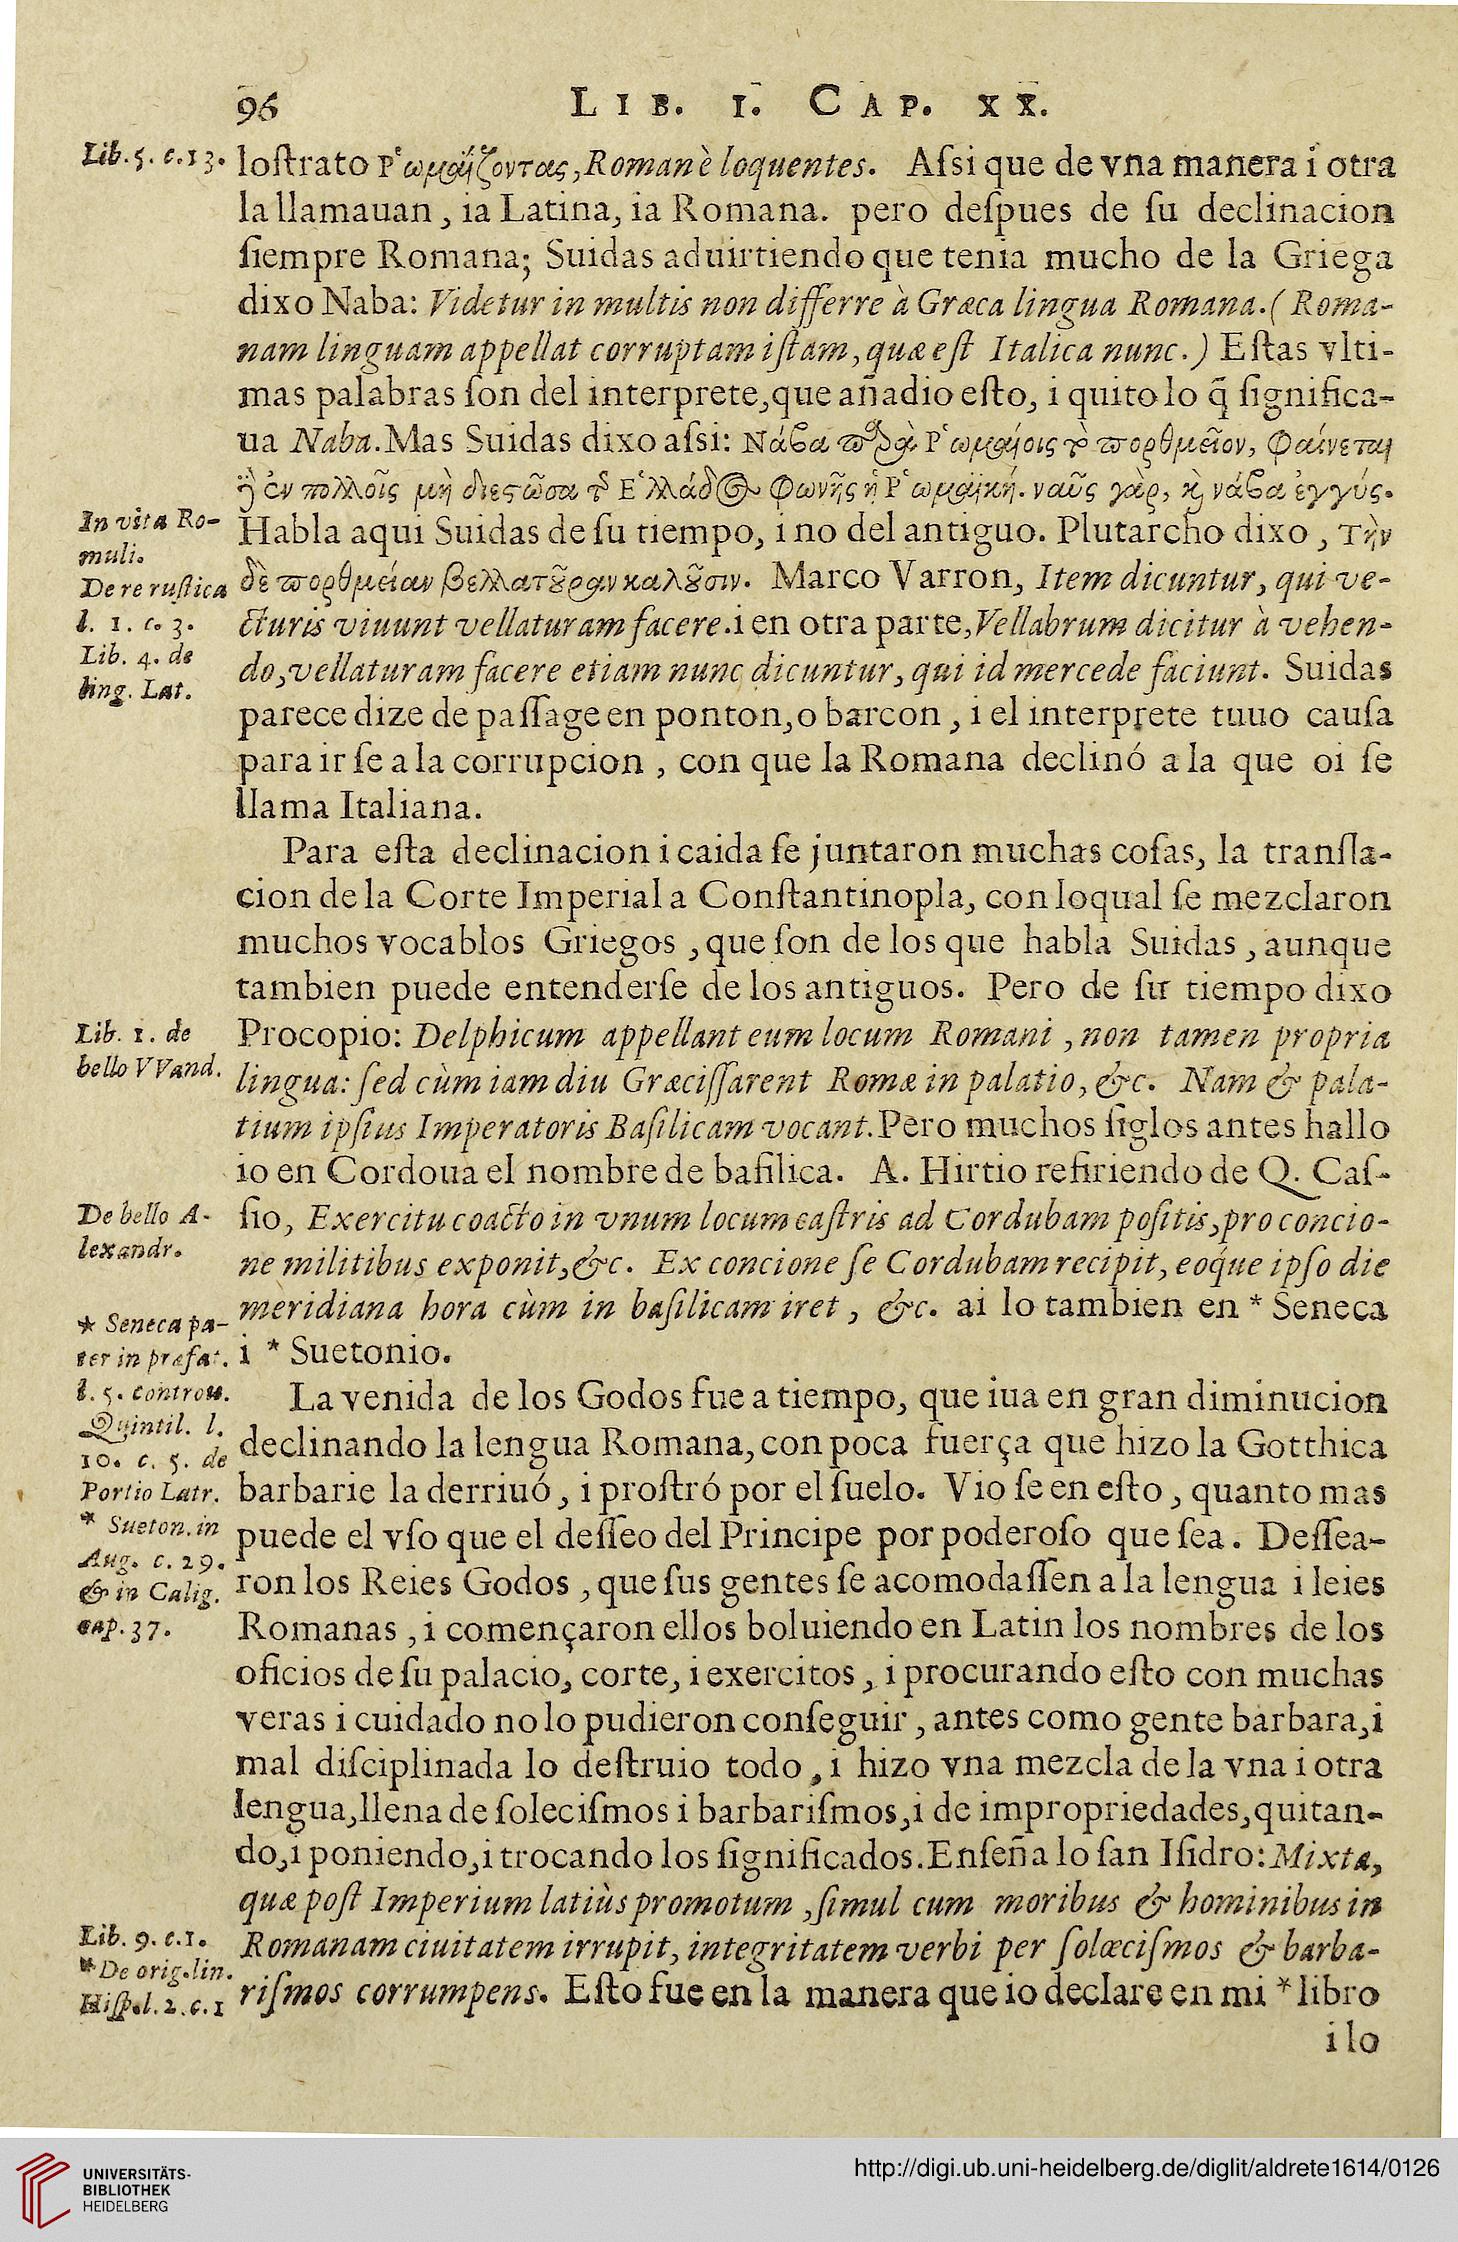 96 LIB. I. CAP. XX.
Lib. 5. c. 13.
loſtrato Ῥωμαΐζοντας, Romanè loquentes. Aſsi que de vna manera i otra
la llamauan, ia Latina, ia Romana. pero deſpues de ſu declinacion
ſiempre Romana; Suidas aduirtiendo que tenia mucho de la Griega
dixo Naba: Videtur in multis non differre à Græca lingua Romana. (Roma-
nam linguam appellat corruptam iſtam, quæ eſt Italica nunc.) Eſtas vlti-
mas palabras ſon del interprete, que añadio eſto, i quito lo q̃ ſignifica-
ua Naba. Mas Suidas dixo aſsi: Νάβα παρὰ Ῥωμαίοις τὸ πορθμεῖον, φαίνεται
ἢ ἐν πολλοῖς μὴ διεστῶσα τῆς Ἑλλάδος φωνῆς ἡ Ῥωμαϊκή. ναῦς γὰρ, καὶ νάβα ἐγγύς.
Habla aqui Suidas de ſu tiempo, i no del antiguo. Plutarcho dixo, Τὴν
δὲ πορθμείαν βελλατοῦραν καλοῦσιν. Marco Varron, Item dicuntur, qui ve-
cturis viuunt vellaturam facere. i en otra parte, Vellabrum dicitur à vehen-
do, vellaturam facere etiam nunc dicuntur, qui id mercede faciunt. Suidas
parece dize de paſſage en ponton, o barcon, i el interprete tuuo cauſa
para ir ſe a la corrupcion, con que la Romana declinó a la que oi ſe
llama Italiana.
In vita Ro-
muli.
De re ruſtica
l. 1. c. 3.
Lib. 4. de
ling. Lat.
Para eſta declinacion i caida ſe juntaron muchas coſas, la tranſla-
cion de la Corte Imperial a Conſtantinopla, con lo qual ſe mezclaron
muchos vocablos Griegos, que ſon de los que habla Suidas, aunque
tambien puede entenderſe de los antiguos. Pero de ſu tiempo dixo
Procopio: Delphicum appellant eum locum Romani, non tamen propria
lingua: ſed cùm iam diu Græciſſarent Romæ in palatio, &c. Nam & pala-
tium ipſius Imperatoris Baſilicam vocant. Pero muchos ſiglos antes hallo
io en Cordoua el nombre de baſilica. A. Hirtio refiriendo de Q. Caſ-
ſio, Exercitu coacto in vnum locum caſtris ad Cordubam poſitis, pro concio-
ne militibus exponit, &c. Ex concione ſe Cordubam recipit, eoque ipſo die
meridiana hora cùm in baſilicam iret, &c. ai lo tambien en * Seneca
i * Suetonio.
Lib. 1. de
bello VVand.
De bello A-
lexandr.
* Seneca pa-
ter in præfat.
l. 5. controu.
Quintil. l.
10. c. 5. de
Portio Latr.
* Sueton. in
Aug. c. 29.
& in Calig.
cap. 37.
La venida de los Godos fue a tiempo, que iua en gran diminucion
declinando la lengua Romana, con poca fuerça que hizo la Gotthica
barbarie la derriuó, i proſtró por el ſuelo. Vio ſe en eſto, quanto mas
puede el vſo que el deſſeo del Principe por poderoſo que ſea. Deſſea-
ron los Reies Godos, que ſus gentes ſe acomodaſſen a la lengua i leies
Romanas, i començaron ellos boluiendo en Latin los nombres de los
oficios de ſu palacio, corte, i exercitos, i procurando eſto con muchas
veras i cuidado no lo pudieron conſeguir, antes como gente barbara, i
mal diſciplinada lo deſtruio todo, i hizo vna mezcla de la vna i otra
lengua, llena de ſoleciſmos i barbariſmos, i de impropriedades, quitan-
do, i poniendo, i trocando los ſignificados. Enſeña lo ſan Iſidro: Mixta,
quæ poſt Imperium latiùs promotum, ſimul cum moribus & hominibus in
Romanam ciuitatem irrupit, integritatem verbi per ſolœciſmos & barba-
riſmos corrumpens. Eſto fue en la manera que io declare en mi * libro
Lib. 9. c. 1.
* De orig. lin.
Hiſp. l. 2. c. 1
i lo
UNIVERSITÄTS-
BIBLIOTHEK
HEIDELBERG
http://digi.ub.uni-heidelberg.de/diglit/aldrete1614/0126